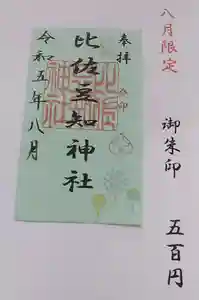 八月限定
御朱印 五百円
奉拝
比佐豆知神社
令和五年八月